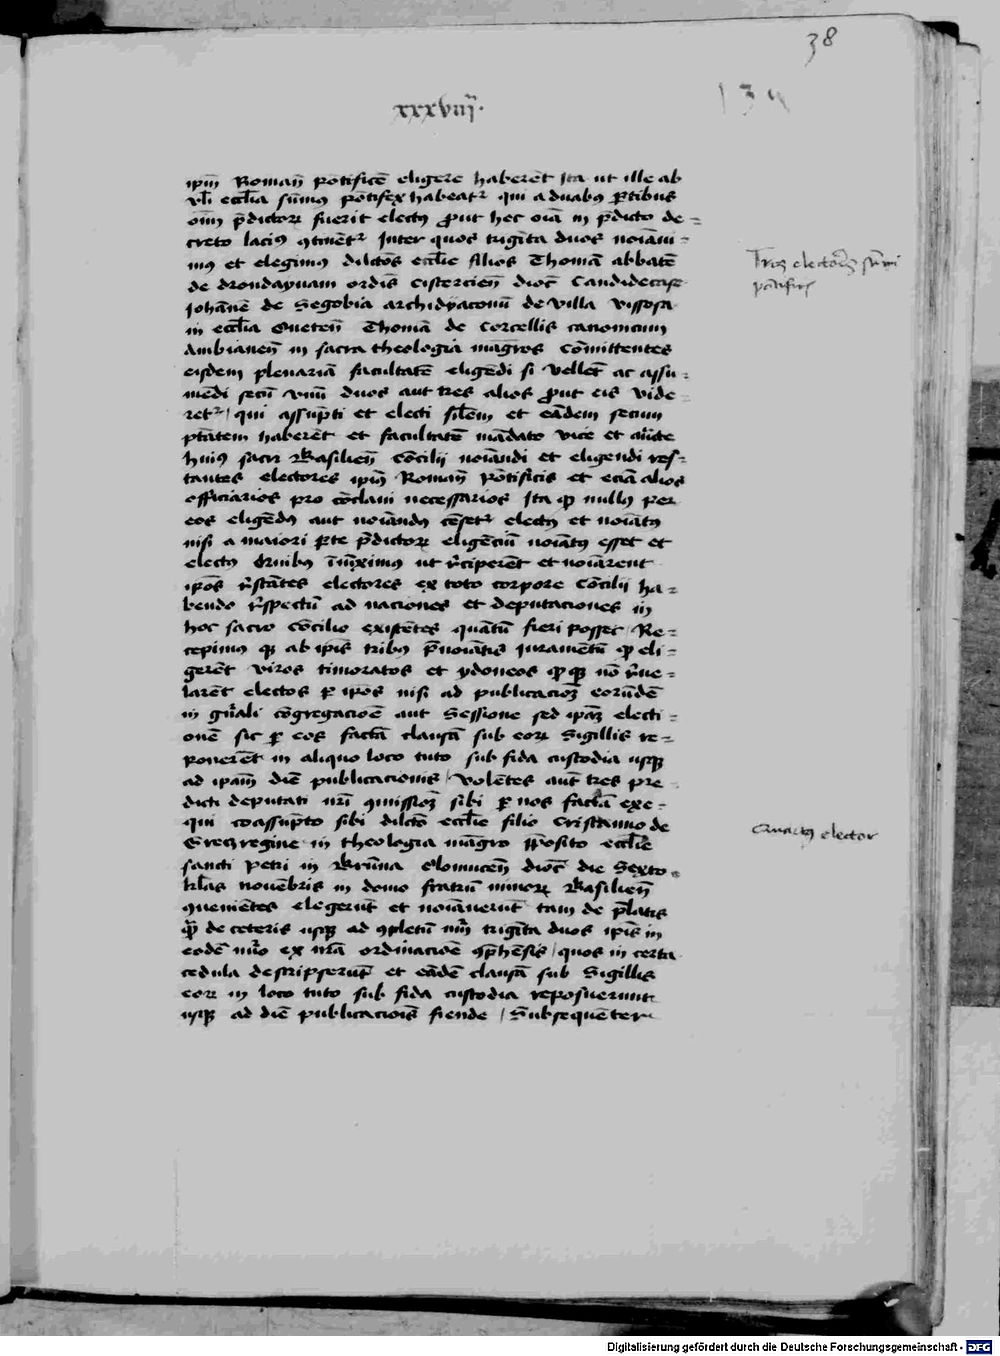 38
xxxviij.
ipm̄ Romanū pōtificē eligere haberēt Ita ut ille ab
vl̄i eccl̄ia sūmus pōtifex habeat᷑ qui a duabꝰ ꝑtibus
oīm p̄dictoꝝ fuerit electꝰ ꝓut hec oīa in p̄dicto de=
creto lacius ꝯtinēt᷑ Inter quos trigīta duos noīavi=
mus et elegimus dilctōs eccl̄ie filios Thomā abbatē
de drondaynam ordīs cistercieñ dioc̄ Candidecase
Johānē de Segobia archidyaconū de villa vissosa
in eccl̄ia Oueteñ Thomā de Corcellis canonicum
Ambianeñ in sacra theologia māgros Cōmittentes
eisdem plenariā facultatē eligēdi si vellēt ac assu=
mēdi secū vnū duos aut tres alios ꝓut eis vide=
ret᷑ / qui assūpti et electi sil̄em et eādem secum
ptātem haberēt et facultatē mādato vice et auc̄te
huiꝰ sacri Basilieñ Cōcilij noīandi et eligendi res=
tantes electores ipīꝰ Romañ pōtificis et eciā alios
officiarios pro cōclaui necessarios Ita ꝙ nullꝰ per
eos eligēdꝰ aut noīandꝰ cēset᷑ electꝰ et noīatꝰ
nisi a maiori ꝑte p̄dictoꝝ eligēciū noīatꝰ esset et
electꝰ Quibꝰ īiūximus ut r̄ciperēt et noīarent
ipōs r̄stātes electores ex toto corpore Cōcilij ha=
bendo r̄spectū ad naciones et deputaciones in
hoc sacro cōcilio existētes quātū fieri posset / Re=
cepimus qꝫ ab ipīs tribꝰ p̄noīatis iuramētū ꝙ eli=
gerēt viros timoratos et ydoneos ꝙ qꝫ nō r̄ue=
larēt electos ꝑ ipōs nisi ad publicacioꝫ eorūdē
in gn̄ali cōgregacioē aut Sessione sed ipāꝫ electi=
onē sic ꝑ eos factā clausā sub eoꝝ sigillis re=
ponerēt in aliquo loco tuto sub fida custodia usqꝫ
ad ipam̄ diē publicacionis / volētes aūt tres pre
dicti deputati nr̄i ꝯmissioꝫ sibi ꝑ nos factā exe=
qui coassūpto sibi dilctō eccl̄ie filio Cristanno de
Grecz regine in theologia māgro p̄posito eccl̄ie
sancti petri in Brūna Olomuceñ dioc̄ die Sexto
kl̄as nouēbris in domo fratrū minoꝝ Basilieñ
ꝯuenietes elegerūt et noīauerūt tam de p̄latis
qm̄ de ceteris usqꝫ ad ꝯpletū nr̄m trigīta duos ipīs in
eodē nūo ex nr̄a ordinacioē ꝯp̄hēsis / quos in certa
cedula descripserūt et eādē clausā sub Sigillis
eoꝝ in loco tuto sub fida custodia reposuerunt
usqꝫ ad diē publicacioīs fiende / Subsequēter
Tres electores sūmi
pōtificis
Quartus elector
Digitalisierung gefördert durch die Deutsche Forschungsgemeinschaft - DFG